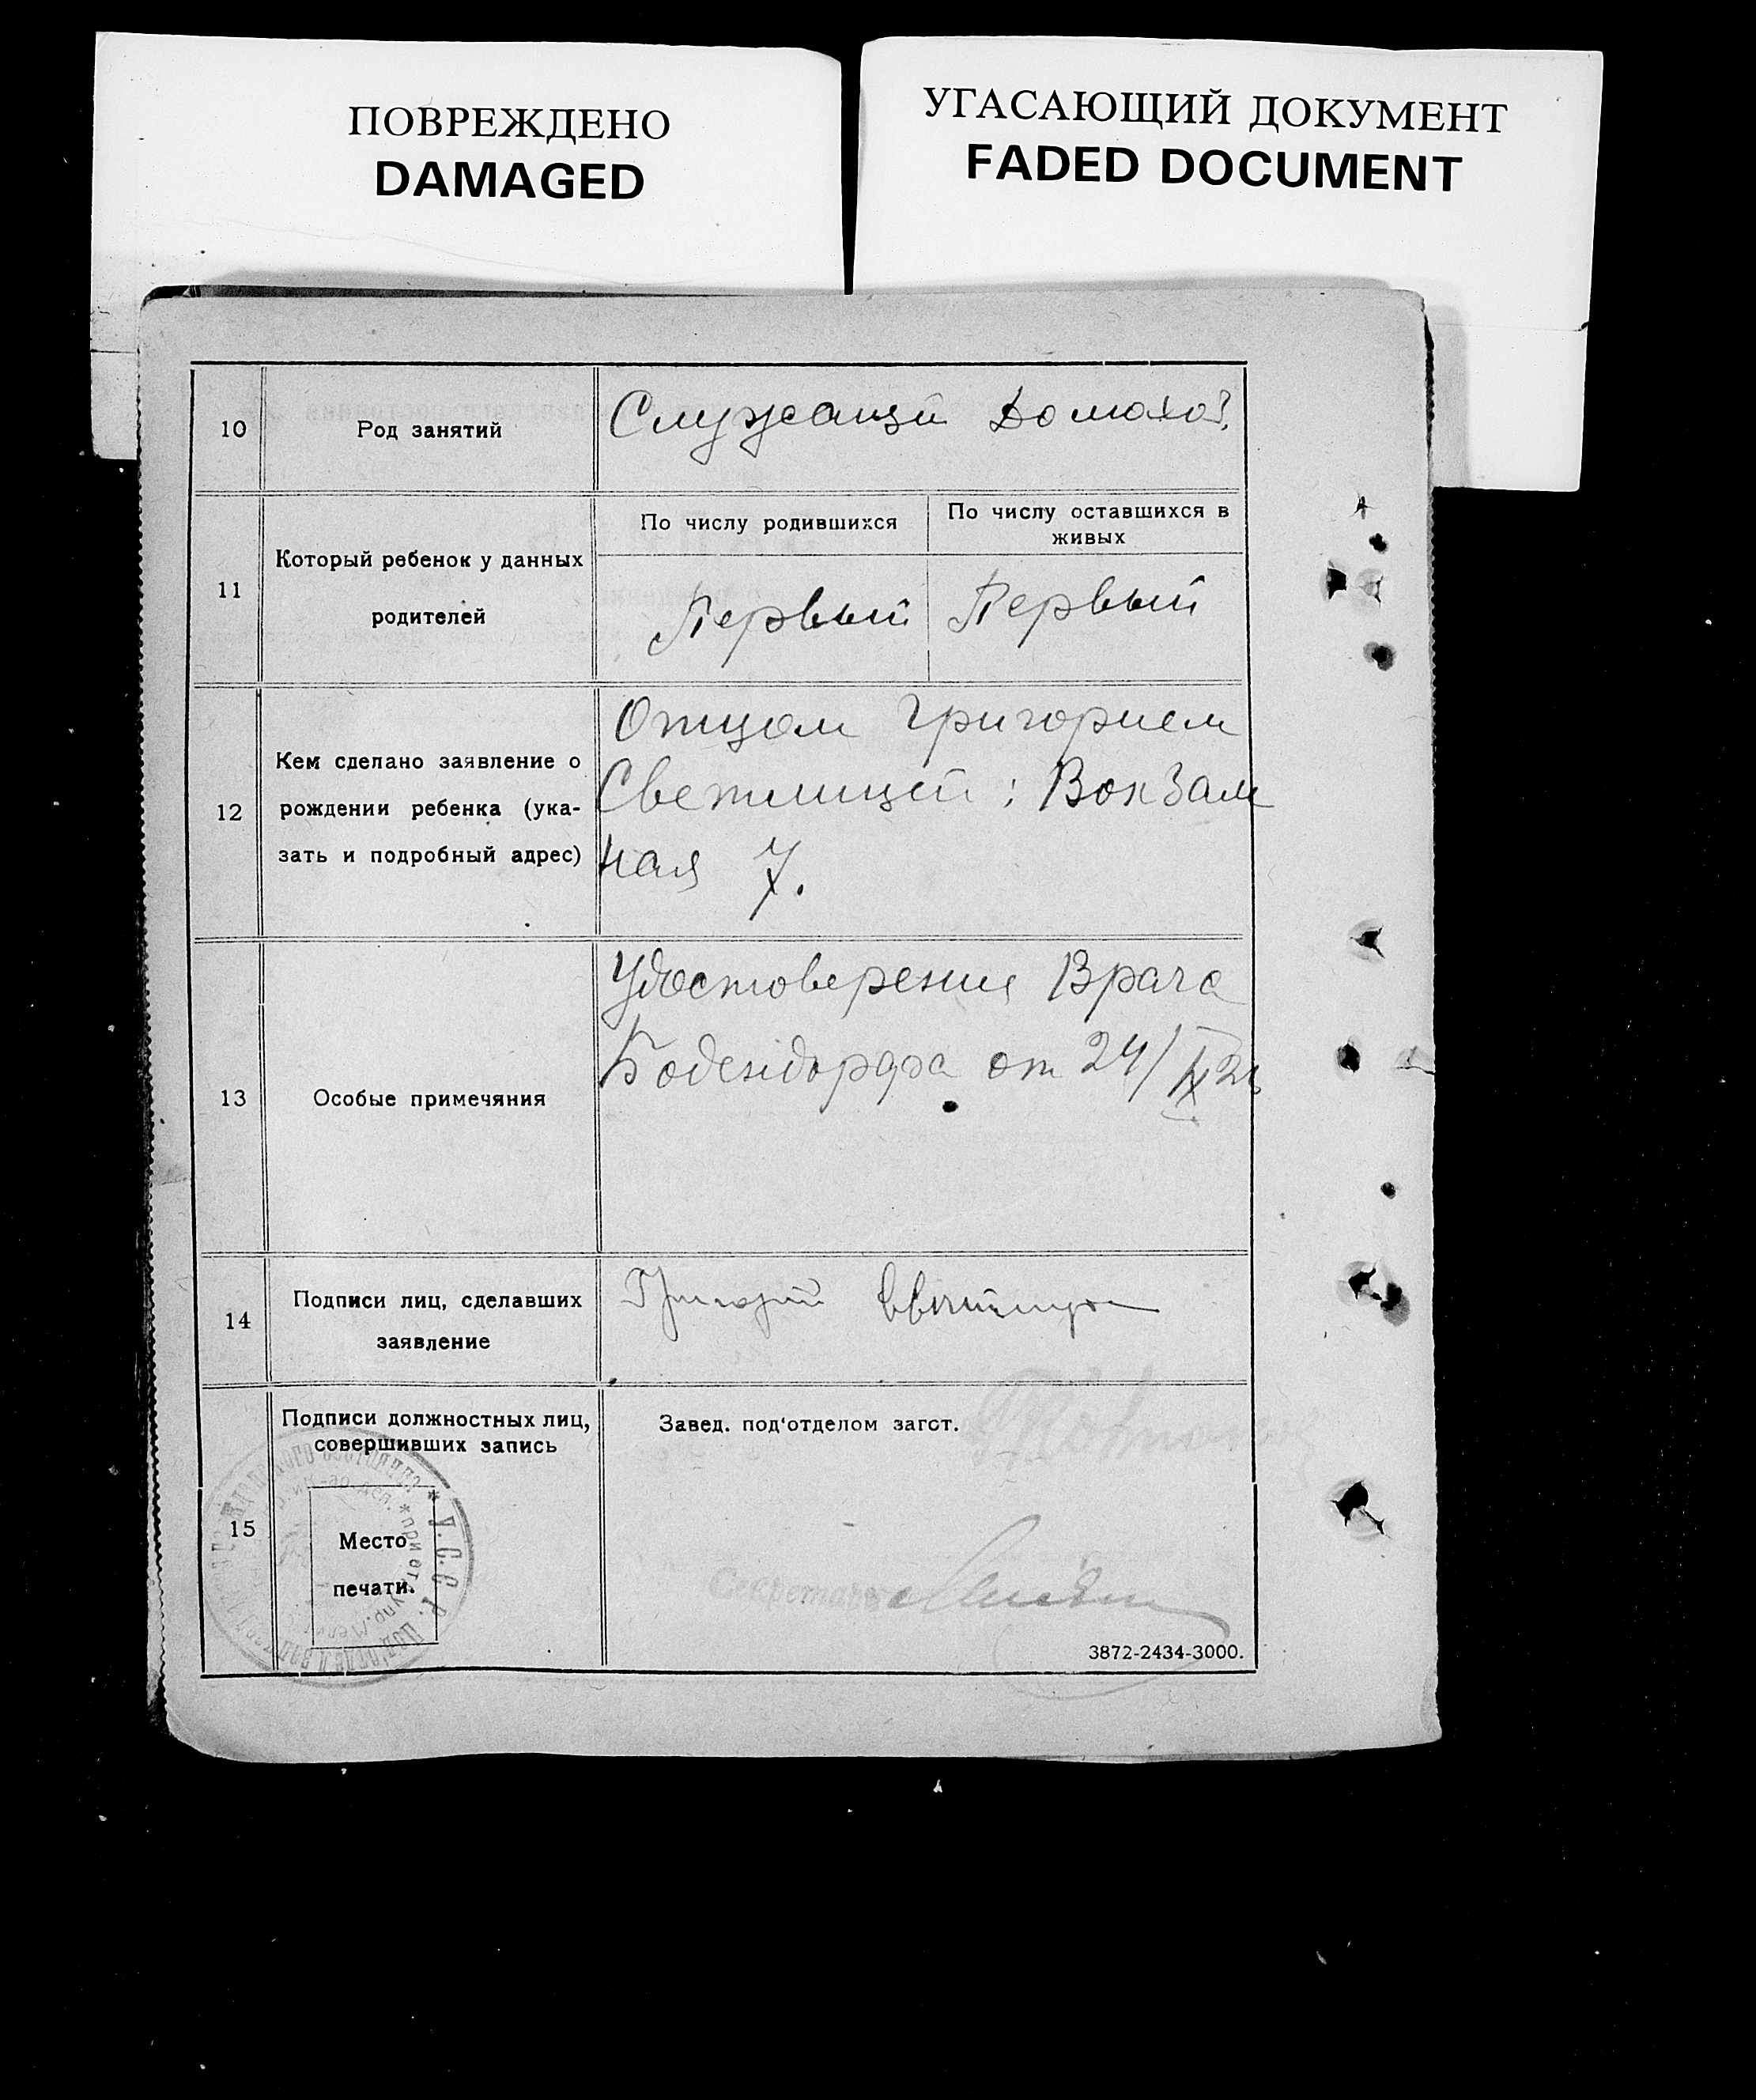 ПОВРЕЖДЕНО
DAMAGED
УГАСАЮЩИЙ ДОКУМЕНТ
FADED DOCUMENT
10
Род занятий
Служащий Домохоз.
11
Который ребенок у данных
родителей
По числу родившихся
По числу оставшихся в
живых
Первый
Первый
12
Кем сделано заявление о
рождении ребенка (ука-
зать и подробный адрес)
Отцом Григорием
: Вокзаль
ная 7.
13
Особые примечяния
Удостоверение Врача
Бодендорфа от 24/IX
14
Подписи лиц, сделавших
заявление
Григорий
15
Подписи должностных лиц,
совершивших запись
Место
печати.
Завед. под‘отделом загст.
Секретарь
3872-2434-3000.